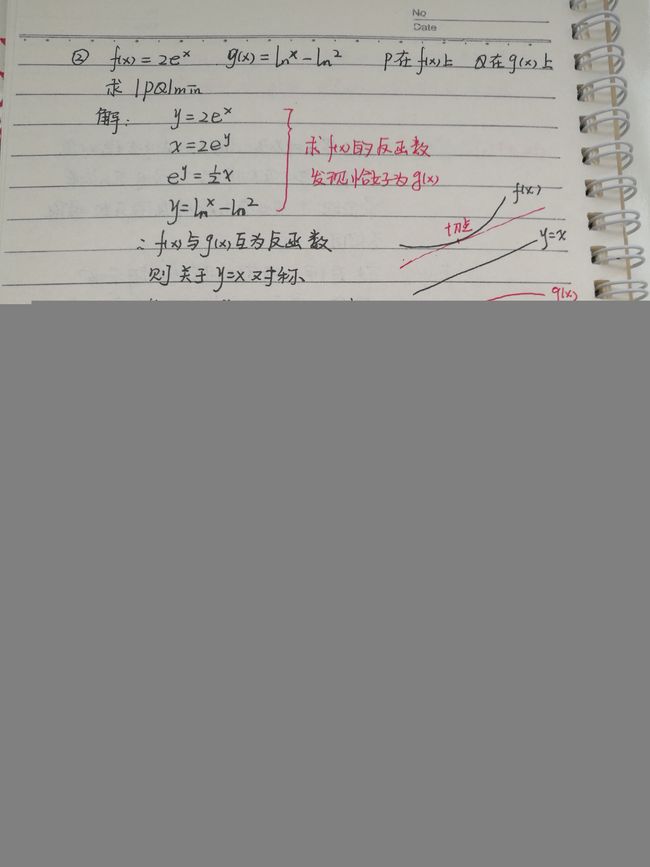 No
Date
② f(x)=2eˣ g(x)=lnˣ-ln² P在f(x)上 Q在g(x)上
求|PQ|min
解: y=2eˣ
x=2eʸ
eʸ=½x
y=lnˣ-ln²
求f(x)的反函数
发现恰好为g(x)
∴f(x)与g(x)互为反函数
则关于y=x对称
f(x)
切点
y=x
g(x)